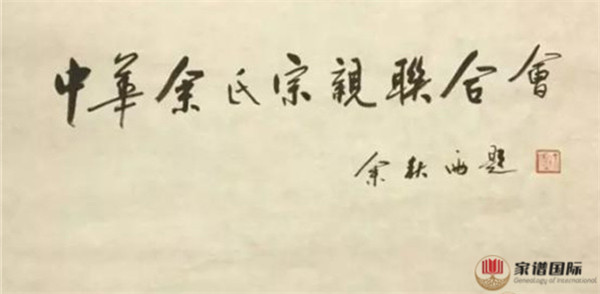 中華余氏宗親聯合會
余秋雨題
家谱国际
Genealogy of International